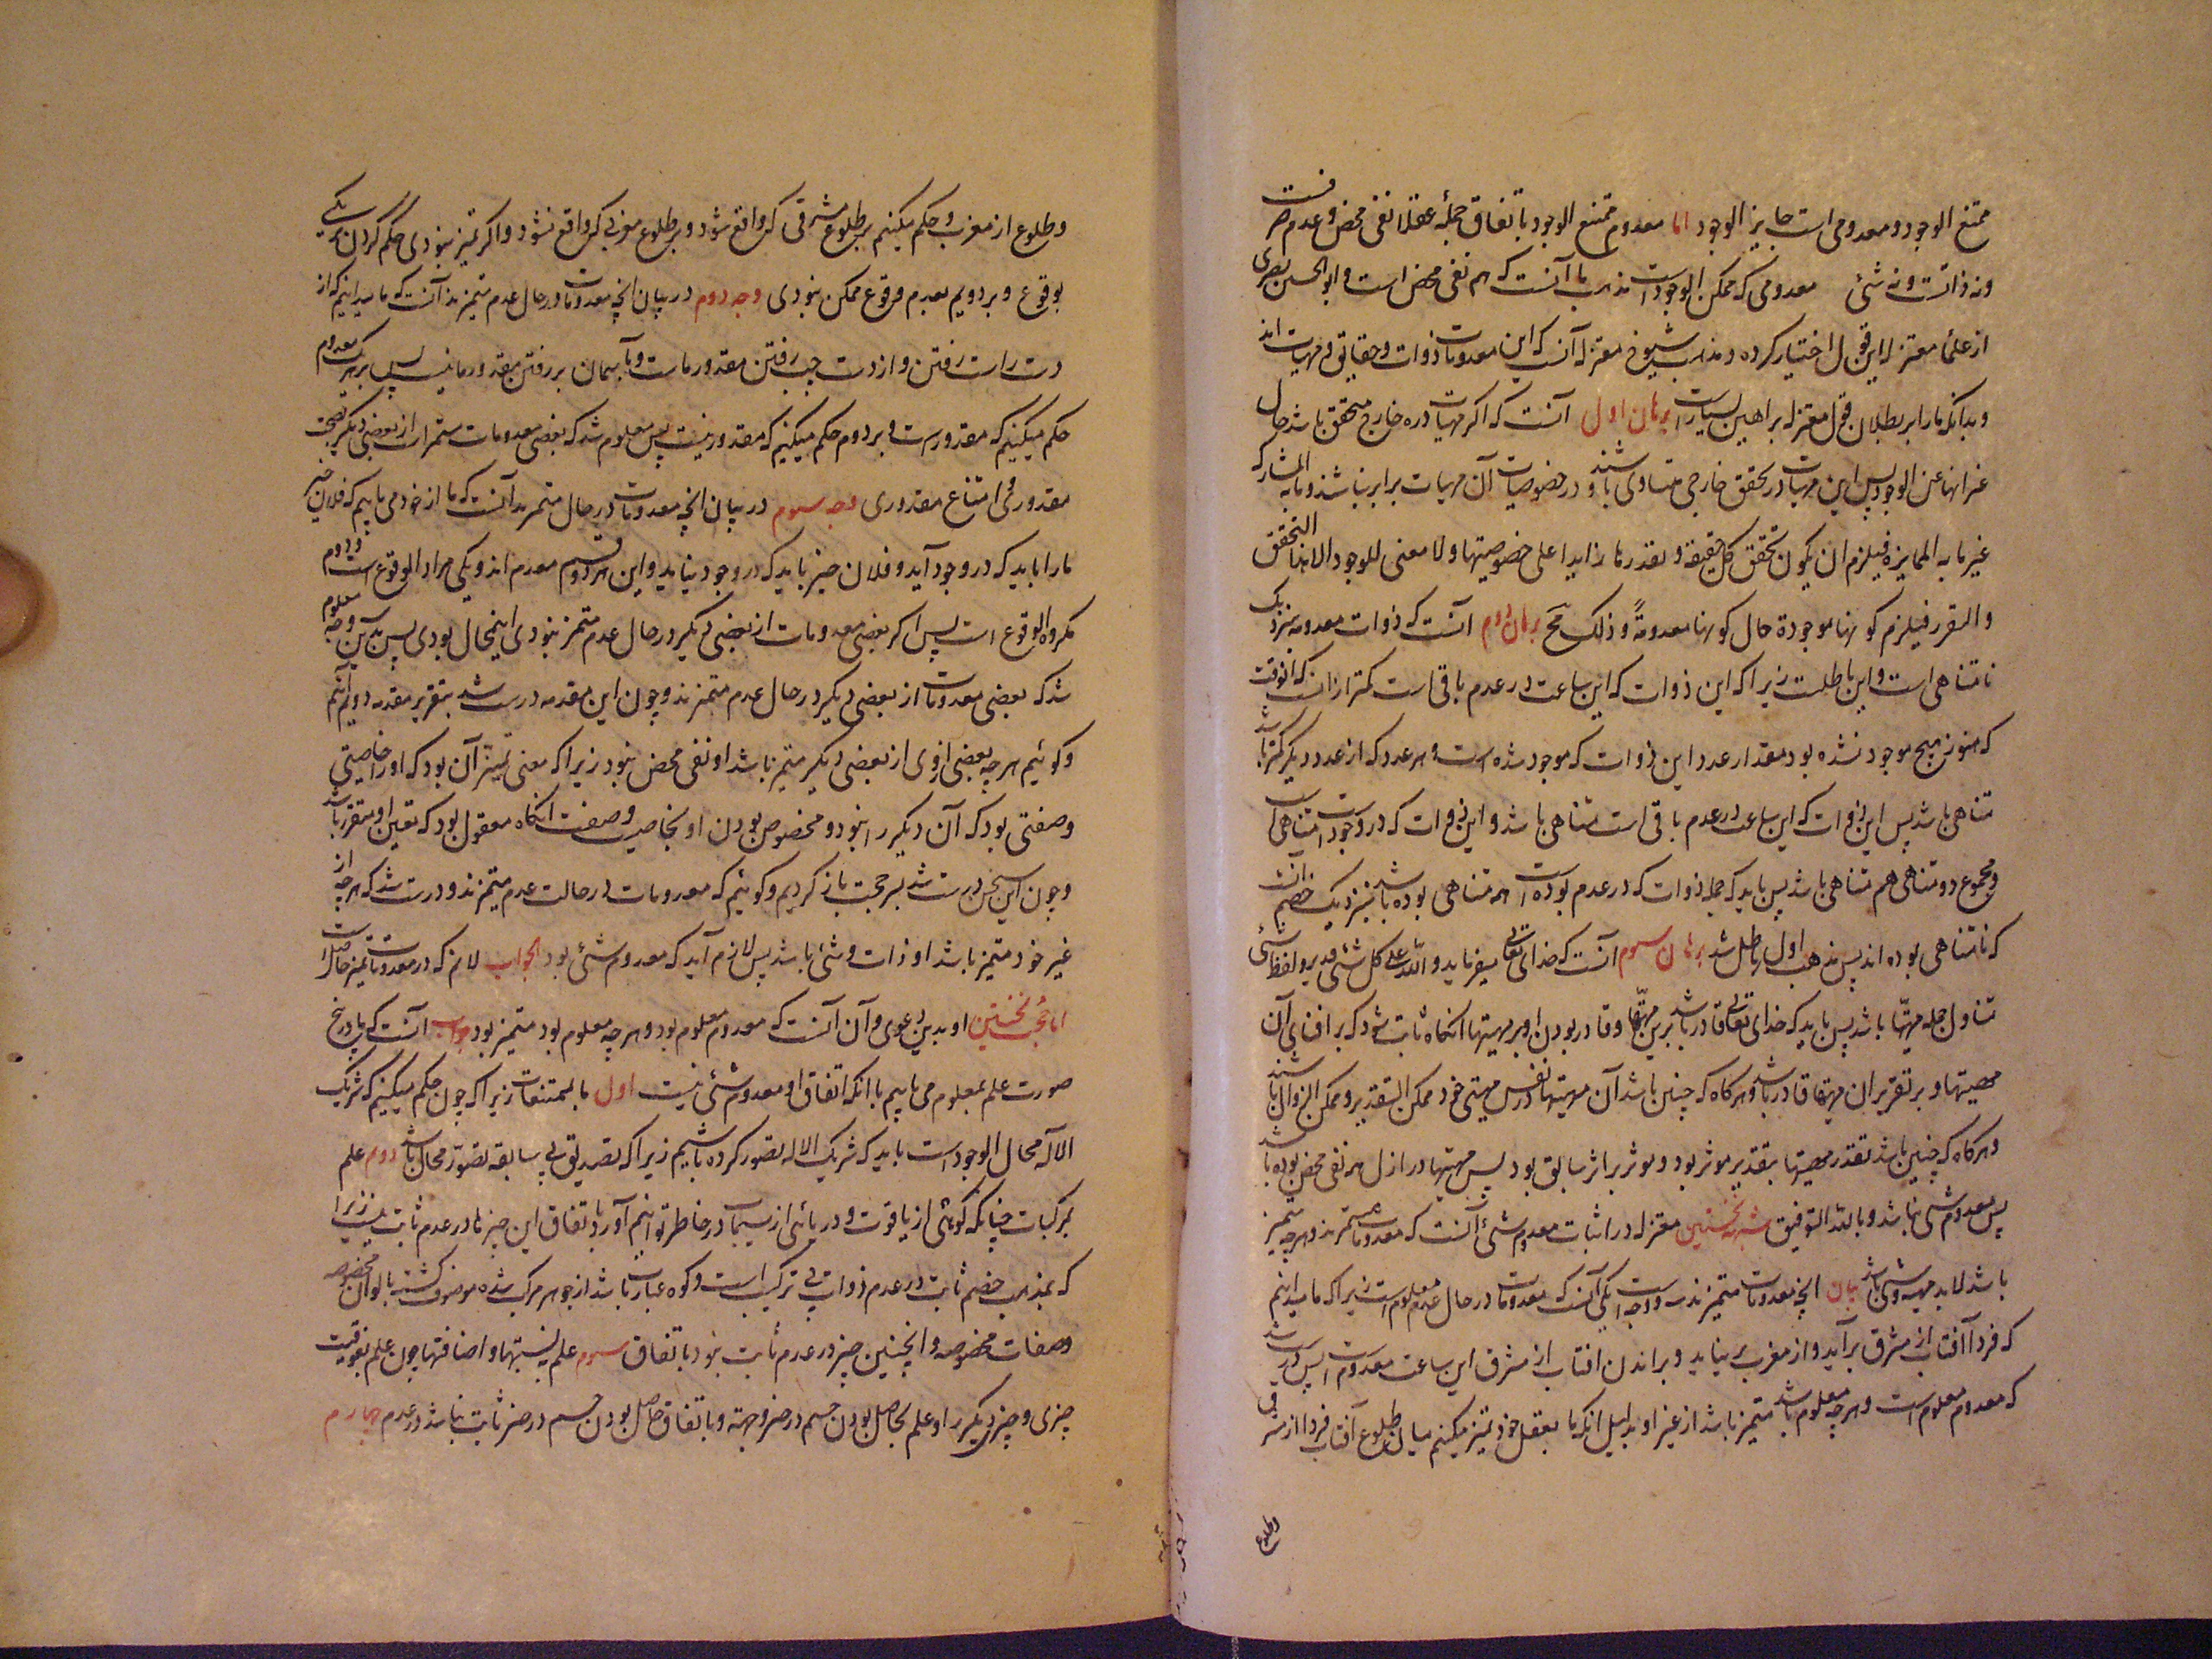 ممتنع الوجود و معدومی است جایز الوجود اما معدوم ممتنع الوجود باتفاق جملهٔ عقلا نفی محض و عدم صرفست
و نه ذاتست و نه شئی معدومی که ممکن الوجود است مذهب ما آنست که هم نفی محض است و ابو الحسن بصری
از علماء معتزله این قول اختیار کرده و مذهب شیوخ معتزله آن که این معدومات ذوات و حقایق و مهیات اند
و بدانکه ما را بر بطلان قول معتزله براهین بسیار است برهان اول آنست که اگر مهیات در خارج متحقق باشد حال
عرائها عن الوجود پس این مهیات در تحقق خارجی متساوی باشند و در خصوصیات آن مهیات برابر نباشند و ما به المشارکه
غیر ما به الممایزه فیلزم ان یکون تحقق کل حقیقة و تقررها زایدا علی خصوصیتها و لا معنی للوجود الا هذا التحقق
و التقرر فیلزم کونها موجودة حال کونها معدومةً و ذلک مح برهان دوم آنست که ذوات معدومه بنزدیک
نامتناهی است و این باطلست زیرا که این ذوات که این ساعت در عدم باقی است کمتر از آنست که آنوقت
که هنوز هیچ موجود نشده بود بمقدار عدد این ذوات که موجود شده است و هر عدد که از عدد دیگر کمتر باشد
متناهی باشد پس این ذوات که این ساعت در عدم باقی است متناهی باشد و این ذوات که در وجود است متناهی است
و مجموع دو متناهی هم متناهی باشد پس باید که جمله ذوات که در عدم بوده است همه متناهی بوده باشد بنزدیک خصم آنست
که نامتناهی بوده اند پس مذهب اول باطل شد برهان سوم آنست که خدای تعالی میفرماید و الله علی کل شئی قدیر و لفظ شئی
متناول جمله مهیتها باشد پس باید که خدای تعالی قادر باشد برین مهیتها و قادر بودن او بر مهیتها آنکاه ثابت شود که بر افنای آن
مهیتها و بر تقریر آن مهیتها قادر باشد و هرکاه که چنین باشد آن مهیتها در نفس مهیتی خود ممکن التقریر و ممکن الزوال باشند
و هرکاه که چنین باشد تقرر مهیتها بتقدیر موثر بود و موثر بر اثر سابق بود پس مهیتها در ازل هم نفی محض بوده باشد
پس معدوم شئی نباشد و بالله التوفیق شبهه نخستین معتزله در اثبات معدوم شئ آنست که معدومات متمیزند و هرچه متمیز
باشد لابد مهیة و شئ باشد بیان انچه معدومات متمیزند سه وجه است یکی آنست که معدومات در حال عدم معلوم است زیرا که ما میدانیم
که فردا آفتاب از مشرق برآید و از مغرب برنیاید و برآمدن آفتاب از مشرق این ساعت معدوم است پس درست شد
که معدوم معلوم است و هرچه معلوم باشد متمیز باشد از غیر او بدلیل آنکه ما بعقل خود تمیز میکنیم میان طلوع آفتاب فردا از مشرق
وطلوع
و طلوع از مغرب و حکم میکنیم بر طلوع مشرقی که واقع شود و بر طلوع مغربی که واقع نشود و اکر تمیز نبودی حکم کردن بر یکی
بوقوع و بر دویم بعدم وقوع ممکن نبودی وجه دوم در بیان انچه معدومات در حال عدم متمیزند آنست که ما میدانیم که از
دست راست رفتن و از دست چپ رفتن مقدور ماست و بآسمان بر رفتن مقدور ما نیست پس بر یک معدوم
حکم میکنیم که مقدورست و بر دوم حکم میکنیم که مقدور نیست پس معلوم شد که بعضی معدومات متمیز است از بعضی دیکر بصحت
مقدوری و امتناع مقدوری وجه سوم در بیان انچه معدومات در حال متمیزند آنست که ما از خود می یابیم که فلان چیز
ما را باید که در وجود آید و فلان چیز باید که در وجود نیاید و این هر دو قسم معدوم اند و یکی مراد الوقوع است و دوم
مکروه الوقوع است پس اکر بعضی معدومات از بعضی دیکر در حال عدم متمیز نبودی اینمحال بودی پس بدین وجه معلوم
شد که بعضی معدومات از بعضی دیکر در حال عدم متمیزند و چون این مقدمه درست شد بتقریر مقدمه دویم آئیم
و کوئیم هرچه بعضی از وی از بعضی دیکر متمیز باشد او نفی محض نبود زیرا که معنی تمیز آن بود که او را خاصیتی
و صفتی بود که آن دیکر را نبود و مخصوص بودن او بخاصیت و صفت آنکاه معقول بود که تعین او متقرر باشد
و چون این سخن درست شد بسر حجت باز کردیم و کوئیم که معدومات در حالت عدم متمیزند و درست شد که هرچه از
غیر خود متمیز باشد او ذات و شئی باشد پس لازم آید که معدوم شئی بود الجواب لانم که در معدومات تمیز حاصل است
اما حجت نخستین او بدین دعوی و آن آنست که معدوم معلوم بود و هرچه معلوم بود متمیز بود جواب آنست که پنج
صورت علم بمعلوم می یابیم با آنکه اتفاق او معدوم شئی نیست اول بالممتنعات زیرا که چون حکم میکنیم که شریک
الآله محال الوجود است باید که شریک الاله تصور کرده باشیم زیرا که تصدیق بی سابقه تصور محال باشد دوم علم
بمرکبات چنانکه کوهی از یاقوت و دریائی از سیماب در خاطر توانیم آورد باتفاق این چیزها در عدم ثابت نیست زیرا
که بمذهب خصم ثابت در عدم ذوات بی ترکیب است و کوه عبارت باشد از جوهر مرکب شده موصوف کشته بالوان مخصوصه
و صفات مخصوصه و اینچنین چیز در عدم ثابت نبود باتفاق سوم علم بنسبتها و اضافتها چون علم بفوقیت
چیزی و چیزی دیکر را و علم بحاصل بودن جسم در حیز و جهة و باتفاق حاصل بودن جسم در حیز ثابت نباشد در عدم چهارم